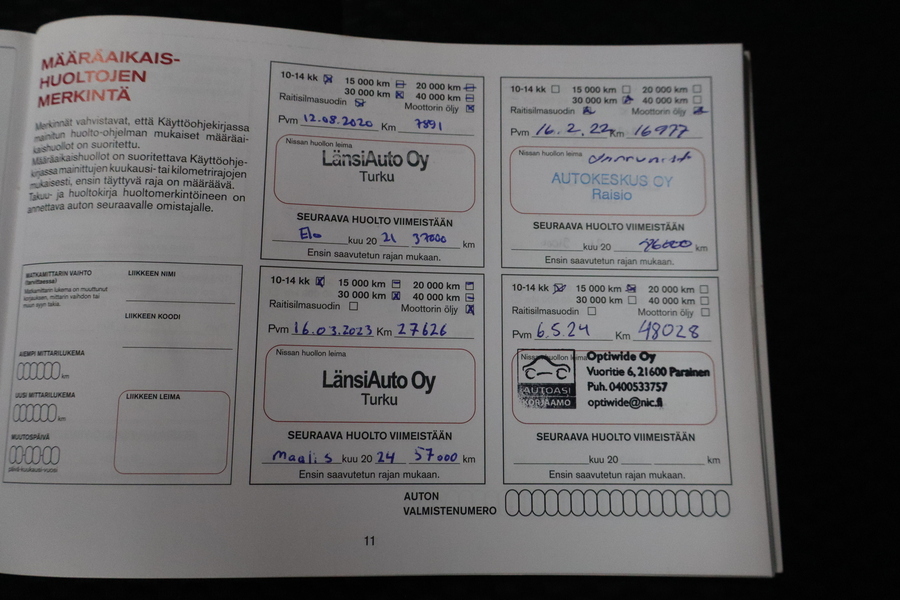 MÄÄRÄAIKAIS-
HUOLTOJEN
MERKINTÄ
Merkinnät vahvistavat, että Käyttöohjekirjassa
mainitun huolto-ohjelman mukaiset määräai-
kaishuollot on suoritettu.
Määräaikaishuollot on suoritettava Käyttöohje-
kirjassa mainittujen kuukausi- tai kilometrirajojen
mukaisesti, ensin täyttyvä raja on määräävä.
Takuu- ja huoltokirja huoltomerkintöineen on
annettava auton seuraavalle omistajalle.
MATKAMITTARIN VAIHTO
(tarvittaessa)
Matkamittarin lukema on muuttunut
korjauksen, mittarin vaihdon tai
muun syyn takia.
AIEMPI MITTARILUKEMA
km
UUSI MITTARILUKEMA
km
MUUTOSPÄIVÄ
päivä-kuukausi-vuosi
LIIKKEEN NIMI
LIIKKEEN KOODI
LIIKKEEN LEIMA
10-14 kk 15 000 km 20 000 km
30 000 km 40 000 km
Raitisilmasuodin Moottorin öljy
Pvm 12.08.2020 Km 7891
Nissan huollon leima
LänsiAuto Oy
Turku
SEURAAVA HUOLTO VIIMEISTÄÄN
Elo kuu 20 21 37000 km
Ensin saavutetun rajan mukaan.
10-14 kk 15 000 km 20 000 km
30 000 km 40 000 km
Raitisilmasuodin Moottorin öljy
Pvm 16.2.22 Km 16977
Nissan huollon leima
AUTOKESKUS OY
Raisio
SEURAAVA HUOLTO VIIMEISTÄÄN
kuu 20 km
Ensin saavutetun rajan mukaan.
10-14 kk 15 000 km 20 000 km
30 000 km 40 000 km
Raitisilmasuodin Moottorin öljy
Pvm 16.03.2023 Km 27626
Nissan huollon leima
LänsiAuto Oy
Turku
SEURAAVA HUOLTO VIIMEISTÄÄN
Maalis kuu 20 24 57000 km
Ensin saavutetun rajan mukaan.
10-14 kk 15 000 km 20 000 km
30 000 km 40 000 km
Raitisilmasuodin Moottorin öljy
Pvm 6.5.24 Km 48028
Nissan huollon leima
AUTOASI
KORJAAMO
Optiwide Oy
Vuoritie 6, 21600 Parainen
Puh. 0400533757
optiwide@nic.fi
SEURAAVA HUOLTO VIIMEISTÄÄN
kuu 20 km
Ensin saavutetun rajan mukaan.
AUTON
VALMISTENUMERO
11